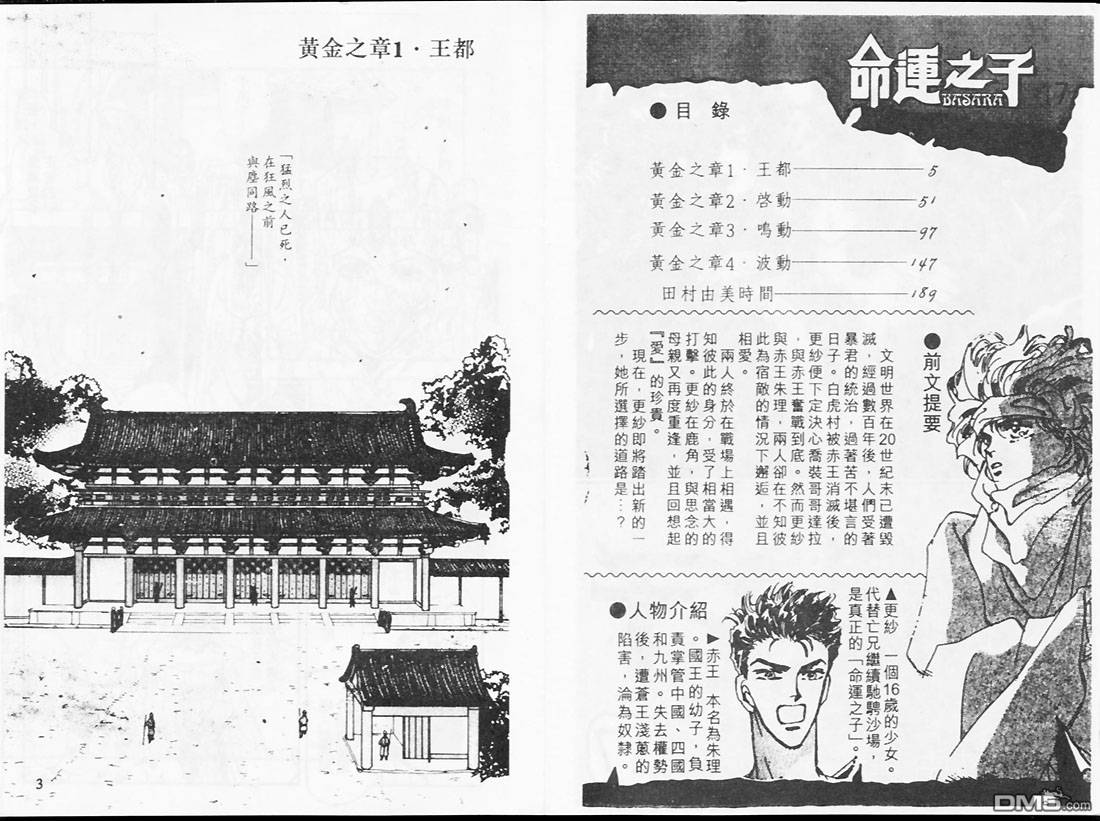 命運之子
BASARA
7
●目錄
黃金之章1．王都 5
黃金之章2．啓動 51
黃金之章3．鳴動 97
黃金之章4．波動 147
田村由美時間 189
●前文提要
文明世界在20世紀末已遭毀
滅，經過數百年後，人們受著
暴君的統治，過著苦不堪言的
日子。白虎村被赤王消滅後，
更紗便下定決心喬裝哥哥達拉
，與赤王奮戰到底。然而更紗
與赤王朱理，兩人卻在不知彼
此為宿敵的情況下邂逅，並且
相愛。
兩人終於在戰場上相遇，得
知彼此的身分，受了相當大的
打擊。更紗在鹿角，與思念的
母親又再度重逢，並且回想起
『愛』的珍貴。
現在，更紗即將踏出新的一
步，她所選擇的道路是…？
▲更紗 一個16歲的少女。
代替亡兄繼續馳騁沙場，
是真正的「命運之子」。
●人物介紹
▶赤王 本名為朱理
。國王的幼子，負
責掌管中國、四國
和九州。失去權勢
後，遭蒼王淺蔥的
陷害，淪為奴隸。
黃金之章1．王都
「猛烈之人已死，
在狂風之前
與塵同路——」
3
DM5.com